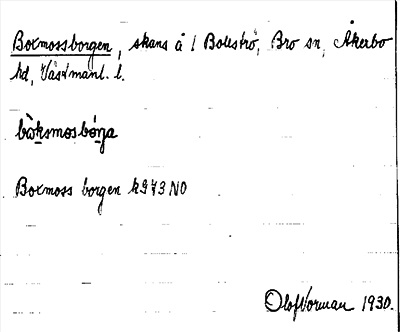 Boxmossborgen, skans å 1 Boleströ, Bro sn, Åkerbo
hd, Västmanl. l.
bòksmosbór̨ja
Boxmoss borgen k973 NO
Olof Norman 1930.